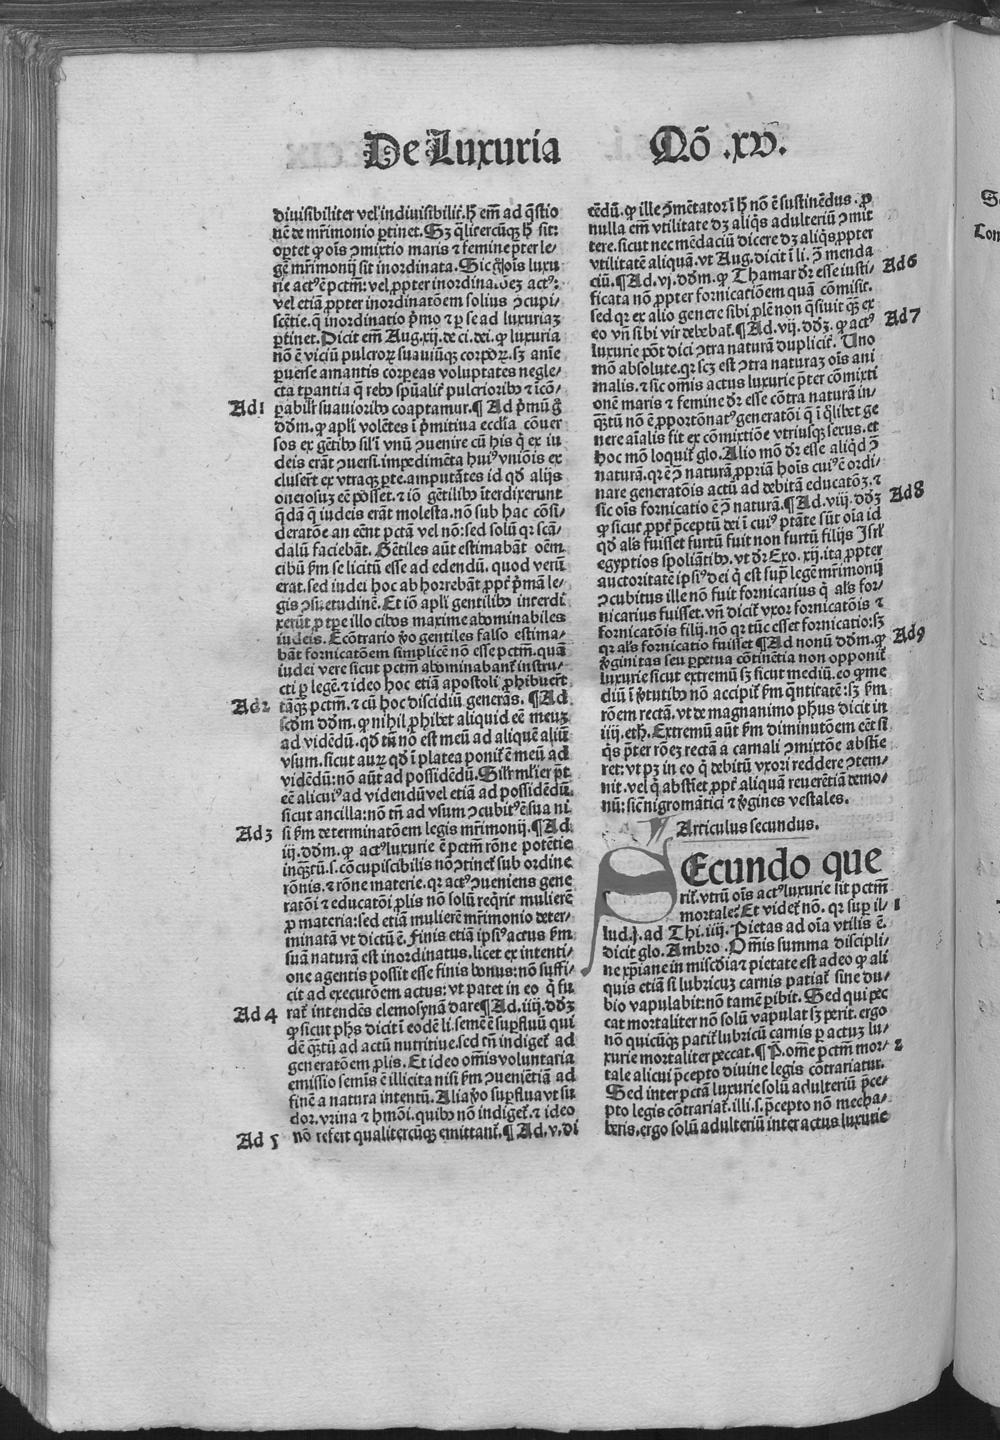 De Luxuria Qõ .xv.
diuisibiliter vel indiuisibilit̃. h̃ em̃ ad q̃stio
nẽ de mr̃imonio ꝑtinet. Sꝫ q̃litercũqꝫ h̃ sit:
oꝑtet ꝙ oĩs ↄmixtio maris ⁊ femine p̃ter le⸗
gẽ mr̃imonij sit inordinata. Sic g̃ oĩs luxu
rie actꝰ ẽ pctm̃: vel ꝓpter inordina.õeꝫ actꝰ:
vel etiã ꝓpter inordinatõem solius ↄcupi⸗
scẽtie. q̃ inordinatio p̃mo ⁊ ꝑ se ad luxuriaꝫ
ꝑtinet. Dicit em̃ Aug. xij. de ci. dei. ꝙ luxuria
nõ ẽ viciũ pulcroꝝ suauiũqꝫ corpoꝝ. sꝫ anĩe
ꝑuerse amantis corpeas voluptates negle⸗
cta tꝑantia q̃ rebꝰ sp̃ualit̃ pulcrioribꝰ ⁊ icõ⸗
Ad 1 ꝑabilit̃ suauioribꝰ coaptamur. ¶ Ad p̃mũ g̃
dõm. ꝙ apl̃i volẽtes ĩ p̃mitiua eccl̃ia cõuer
sos ex gẽtibꝰ sil̃ ĩ vnũ ↄuenire cũ his q̃ ex iu
deis erãt ↄuersi. impedimẽta huiꝰ vniõis ex
cluserũt ex vtraqꝫ ꝑte. amputãtes id qd̃ alijs
onerosuꝫ eẽ posset. ⁊ iõ gẽtilibꝰ ĩterdixerunt
q̃dã q̃ iudeis erãt molesta. nõ sub hac cõsi⸗
deratõe an eẽnt pctã vel nõ: sed solũ qꝛ scã⸗
dalũ faciebãt. Gẽtiles aũt estimabãt oẽm
cibũ ẜm se licitũ esse ad edendũ. quod verũ
erat. sed iudei hoc abhorrebãt ꝓpt̃ p̃mã le⸗
gis ↄsuetudinẽ. Et iõ apl̃i gentilibꝰ interdi
xerũt ꝑ tꝑe illo cibos maxime abominabiles
iudeis. Ecõtrario ꝟo gentiles falso estima⸗
bãt fornicatõem simplicẽ nõ esse pctm̃. quã
iudei vere sicut pctm̃ abominabant̃ instru⸗
cti ꝑ legẽ. ⁊ ideo hoc etiã apostoli ꝓhibuerũt
Ad 2 tãqꝫ pctm̃. ⁊ cũ hoc discidiũ generãs. ¶ Ad
scd̃m dõm. ꝙ nihil ꝓhibet aliquid eẽ meuꝫ
ad vidẽdũ. qd̃ tñ nõ est meũ ad aliquẽ aliũ
vsum. sicut auꝝ qd̃ ĩ platea ponit̃ ẽ meũ ad
vidẽdũ: nõ aũt ad possidẽdũ. Sil̃r ml̃ier p̃t
eẽ alicuiꝰ ad videndũ vel etiã ad possidẽdũ.
sicut ancilla: nõ tñ ad vsum ↄcubitꝰ ẽ sua ni
Ad 3 si ẜm determinatõem legis mr̃imonij. ¶ Ad
iij. dõm. ꝙ actꝰ luxurie ẽ pctm̃ rõne potẽtie
inqꝫtũ. s. cõcupiscibilis nõ ↄtinet̃ sub ordine
rõnis. ⁊ rõne materie. qꝛ actꝰ ↄueniens gene
ratõi ⁊ educatõi ꝓlis nõ solũ reqrit̃ mulierẽ
ꝓ materia: sed etiã mulierẽ mr̃imonio deter⸗
minatã vt dictũ ẽ. Finis etiã ipsiꝰ actus ẜm
suã naturã est inordinatus. licet ex intenti⸗
one agentis possit esse finis bonus: nõ suffi⸗
cit ad executõem actus: vt patet in eo q̃ fu
Ad 4 rat̃ intendẽs elemosynã dare ¶ Ad. iiij. dõꝫ
ꝙ sicut phs dicit ĩ eodẽ li. semẽ ẽ suꝑfluũ qui
dẽ qꝫtũ ad actũ nutritiue. sed tñ indiget̃ ad
generatõem ꝓlis. Et ideo om̃is voluntaria
emissio semĩs ẽ illicita nisi ẜm ↄueniẽtiã ad
finẽ a natura intentũ. Alia ꝟo suꝑflua vt su
dor. vrina ⁊ hmõi. quibꝰ nõ indiget̃. ⁊ ideo
Ad 5 nõ refert qualitercũqꝫ emittant̃. ¶ Ad. v. di
cẽdũ. ꝙ ille ↄmẽtator ĩ h̃ nõ ẽ sustinẽdus. ꝓ
nulla em̃ vtilitate dꝫ aliq̃s adulteriũ ↄmit
tere. sicut nec mẽdaciũ dicere dꝫ aliq̃s ꝓpter
vtilitatẽ aliquã. vt Aug. dicit ĩ li. ↄ̃ menda
Ad 6 ciũ. ¶ Ad. vj. dõm. ꝙ Thamar dr̃ esse iusti⸗
ficata nõ ꝓpter fornicatiõem quã cõmisit.
sed qꝛ ex alio genere sibi ꝓlẽ non q̃siuit qꝫ ex
Ad 7 eo vñ sibi vir debebat̃. ¶ Ad. vij. dõꝫ. ꝙ actꝰ
luxurie põt dici ↄtra naturã duplicit̃. Uno
mõ absolute. qꝛ scꝫ est ↄtra naturaꝫ oĩs ani
malis. ⁊ sic om̃is actus luxurie p̃ter cõmixti
onẽ maris ⁊ femine dr̃ esse cõtra naturã in⸗
qꝫtũ nõ ẽ ꝓportõnatꝰ generatõi q̃ ĩ q̃libet ge
nere aĩalis fit ex cõmixtiõe vtriusqꝫ sexus. et
hoc mõ loquit̃ glo. Alio mõ dr̃ esse aliqd̃ ↄ̃
naturã. qꝛ ẽ ↄ̃ naturã ꝓpriã hoĩs cuiꝰ ẽ ordi⸗
nare generatõis actũ ad debitã educatõꝫ. ⁊
Ad 8 sic oĩs fornicatio ẽ ↄ̃ naturã. ¶ Ad. viij. dõꝫ
ꝙ sicut ꝓpt̃ p̃ceptũ dei ĩ cuiꝰ ptãte sũt oĩa id
qd̃ al̃s fuisset furtũ fuit non furtũ filijs Isrl̃
egyptios spoliãtibꝰ. vt dr̃ Exo. xij. ita ꝓpter
auctoritatẽ ipsiꝰ dei q̃ est sup̃ legẽ mr̃imonij
ↄcubitus ille nõ fuit fornicarius q̃ al̃s for⸗
nicarius fuisset. vñ dicit̃ vxor fornicatõis ⁊
fornicatõis filij. nõ qꝛ tũc esset fornicatio: sꝫ
Ad 9 qꝛ al̃s fornicatio fuisset ¶ Ad nonũ dõm. ꝙ
ꝟginitas seu ꝑpetua cõtinẽtia non opponit̃
luxurie sicut extremũ sꝫ sicut mediũ. eo ꝙ me
diũ ĩ ꝟtutibꝰ nõ accipit̃ ẜm q̃ntitatẽ: sꝫ ẜm
rõem rectã. vt de magnanimo phus dicit in
iiij. eth. Extremũ aũt ẜm diminutõem eẽt si
q̃s p̃ter rõeꝫ rectã a carnali ↄmixtõe abstie
ret: vt pꝫ in eo q̃ debitũ vxori reddere ↄtem⸗
nit. vel q̃ abstiet̃ ꝓpt̃ aliquã reuerẽtiã demo⸗
nũ: sic̃ nigromãtici ⁊ ꝟgines vestales.
Articulus secundus.
SEcundo que
rit̃. vtrũ oĩs actꝰ luxurie sit pctm̃
mortale. Et videt̃ nõ. qꝛ suꝑ il⸗ 1
lud. j. ad Thi. iiij. Pietas ad oĩa vtilis ẽ.
dicit glo. Ambro. Om̃is summa discipli⸗
ne xp̃iane in miscd̃ia ⁊ pietate est adeo ꝙ ali
quis etiã si lubricuꝫ carnis patiat̃ sine du⸗
bio vapulabit: nõ tamẽ ꝑibit. Sed qui pec
cat mortaliter nõ solũ vapulat sꝫ perit. ergo
nõ quicũqꝫ patit̃ lubricũ carnis ꝑ actuꝫ lu⸗
xurie mortaliter peccat. ¶ P̃. om̃e pctm̃ mor⸗ 2
tale alicui p̃cepto diuine legis cõtrariatur.
Sed inter pctã luxurie solũ adulteriũ p̃ce⸗
pto legis cõtrariat̃. illi. s. p̃cepto nõ mecha⸗
beris. ergo solũ adulteriũ inter actus luxurie